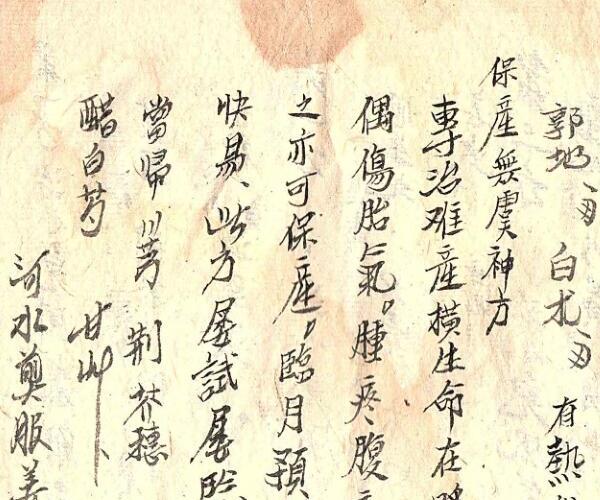 郭地 白朮 有熱
保產無虞神方
專治难產橫生命在
偶傷胎氣。腫疼腹
之亦可保產。臨月預
快易、此方屡試屡
當帰 川芎 荆芥穗
醋白芍 甘艸
河水煎服